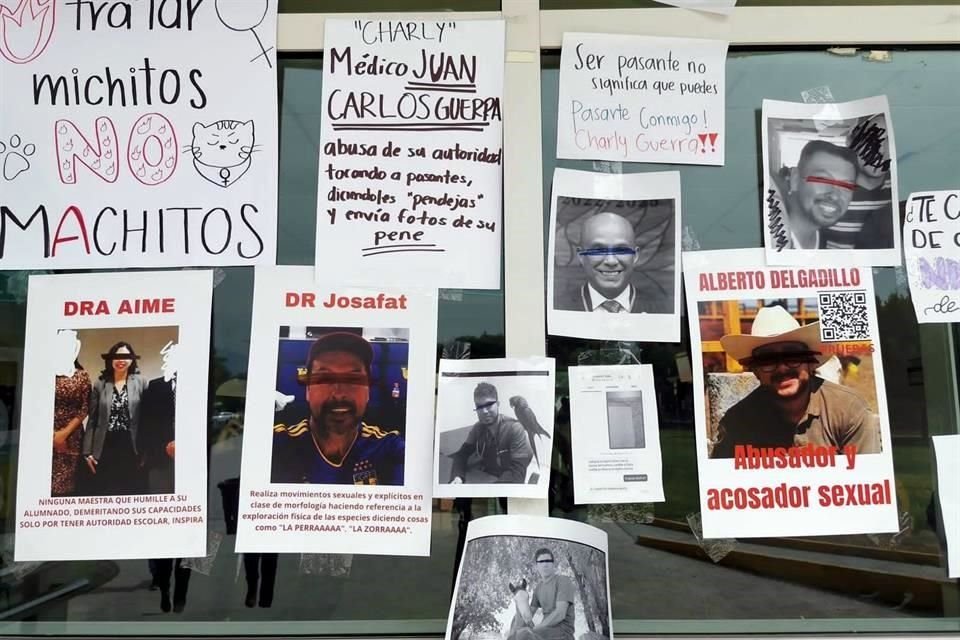 tratar
michitos
NO
MACHITOS
"CHARLY"
Médico JUAN
CARLOS GUERRA
abusa de su autoridad
tocando a pasantes,
diciendoles "pendejas"
y envía fotos de su
pene
Ser pasante no
significa que puedes
Pasarte Conmigo!
Charly Guerra!!
¿TE C
DE C
DRA AIME
NINGUNA MAESTRA QUE HUMILLE A SU
ALUMNADO, DEMERITANDO SUS CAPACIDADES
SOLO POR TENER AUTORIDAD ESCOLAR, INSPIRA
DR Josafat
Realiza movimientos sexuales y explícitos en
clase de morfología haciendo referencia a la
exploración física de las especies diciendo cosas
como "LA PERRAAAAA". "LA ZORRAAAA".
ALBERTO DELGADILLO
PRUEBAS
Abusador y
acosador sexual